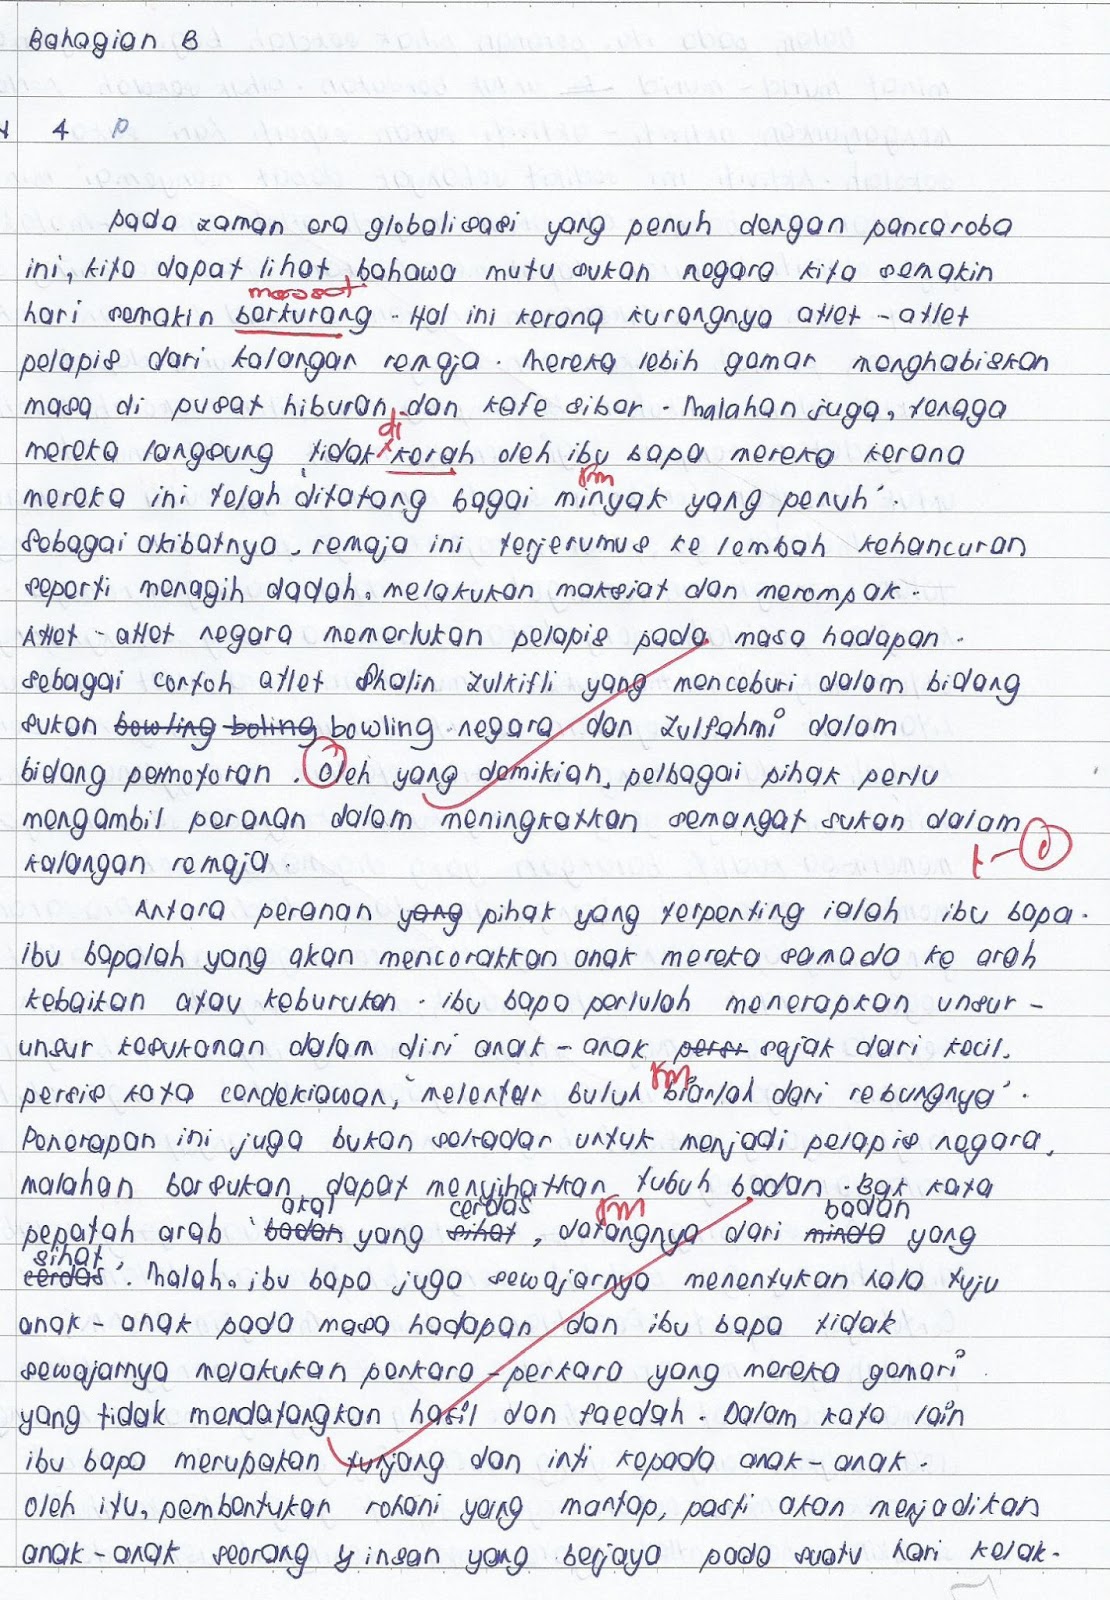 Bahagian B
4 P
Pada zaman era globalisasi yang penuh dengan pancaroba
ini, kita dapat lihat bahawa mutu sukan negara kita semakin
merosot
hari semakin berkurang. Hal ini kerana kurangnya atlet-atlet
pelapis dari kalangan remaja. Mereka lebih gemar menghabiskan
masa di pusat hiburan dan kafe siber. Malahan juga, tenaga
di
mereka langsung tidak kerah oleh ibu bapa mereka kerana
km
mereka ini telah 'ditatang bagai minyak yang penuh'.
Sebagai akibatnya, remaja ini terjerumus ke lembah kehancuran
seperti menagih dadah, melakukan maksiat dan merompak.
Atlet-atlet negara memerlukan pelapis pada masa hadapan.
Sebagai contoh atlet Shalin Zulkifli yang menceburi dalam bidang
sukan bowling boling bowling negara dan Zulfahmi dalam
bidang permotoran. Oleh yang demikian, pelbagai pihak perlu
mengambil peranan dalam meningkatkan semangat sukan dalam
kalangan remaja.
Antara peranan yang pihak yang terpenting ialah ibu bapa.
Ibu bapalah yang akan mencorakkan anak mereka samada ke arah
kebaikan atau keburukan. Ibu bapa perlulah menerapkan unsur-
unsur kesukanan dalam diri anak-anak persi sejak dari kecil,
km
persis kata cendekiawan, 'melentur buluh bianlah dari rebungnya'.
Penerapan ini juga bukan sekadar untuk menjadi pelapis negara,
malahan bersukan dapat menyihatkan tubuh badan. Bak kata
akal cerdas km badan
pepatah arab 'badan yang sihat, datangnya dari minda yang
sihat
cerdas'. Malah, ibu bapa juga sewajarnya menentukan hala tuju
anak-anak pada masa hadapan dan ibu bapa tidak
sewajarnya melakukan perkara-perkara yang mereka gemari
yang tidak mendatangkan hasil dan faedah. Dalam kata lain
ibu bapa merupakan tunjang dan inti kepada anak-anak.
Oleh itu, pembentukan rohani yang mantap, pasti akan menjadikan
anak-anak seorang insan yang berjaya pada suatu hari kelak.